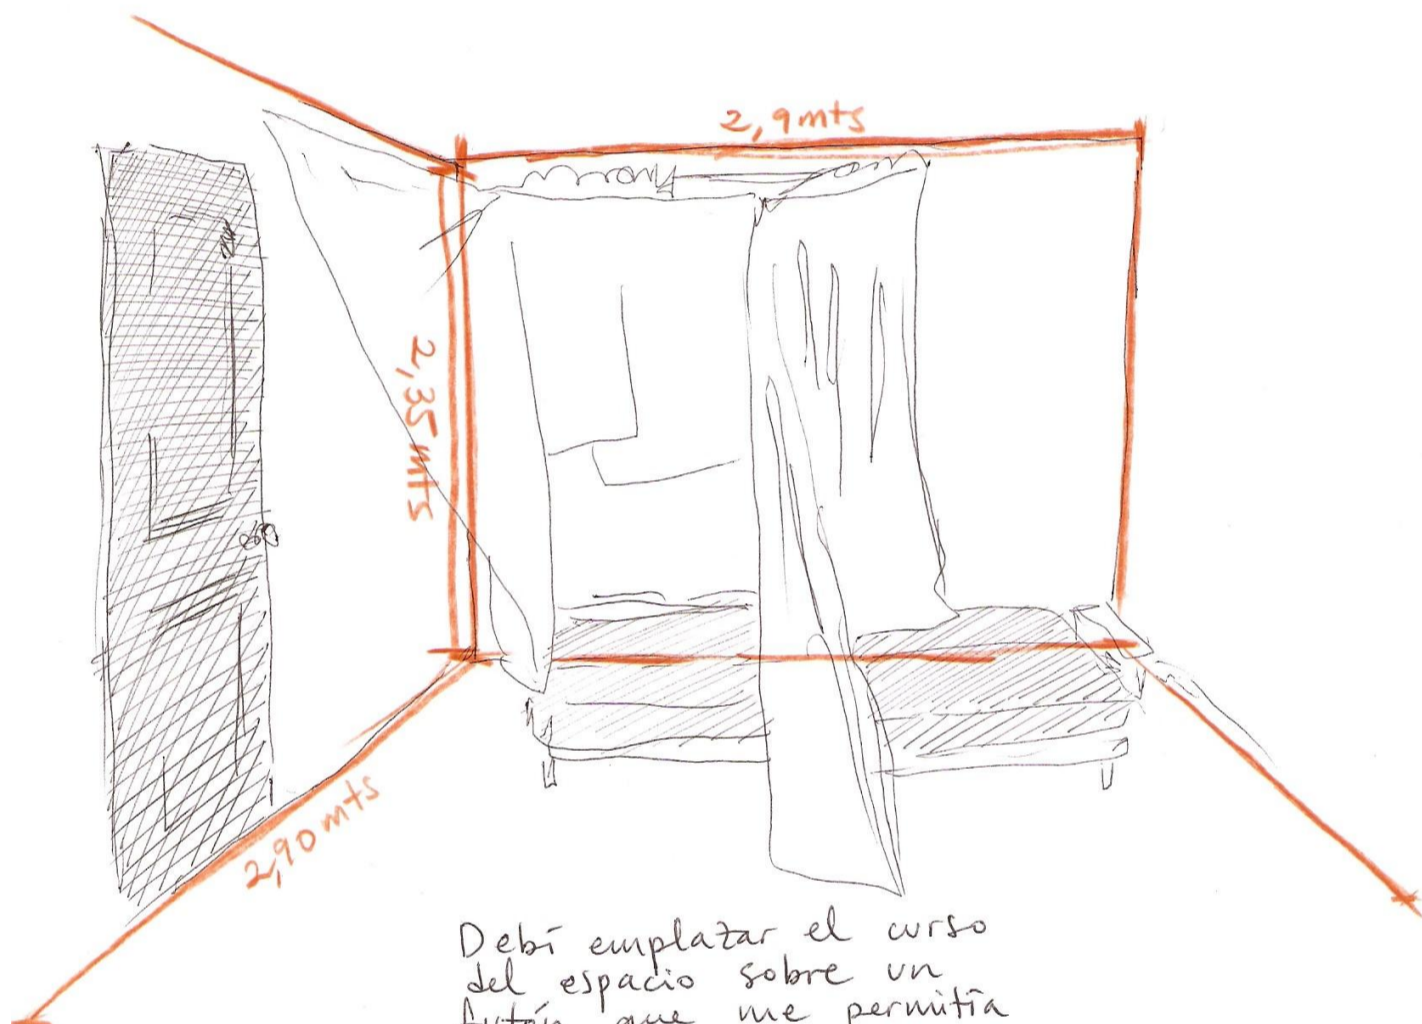 2,9mts
2,35 mts
2,90 mts
Debí emplazar el curso
del espacio sobre un
futón que me permitía